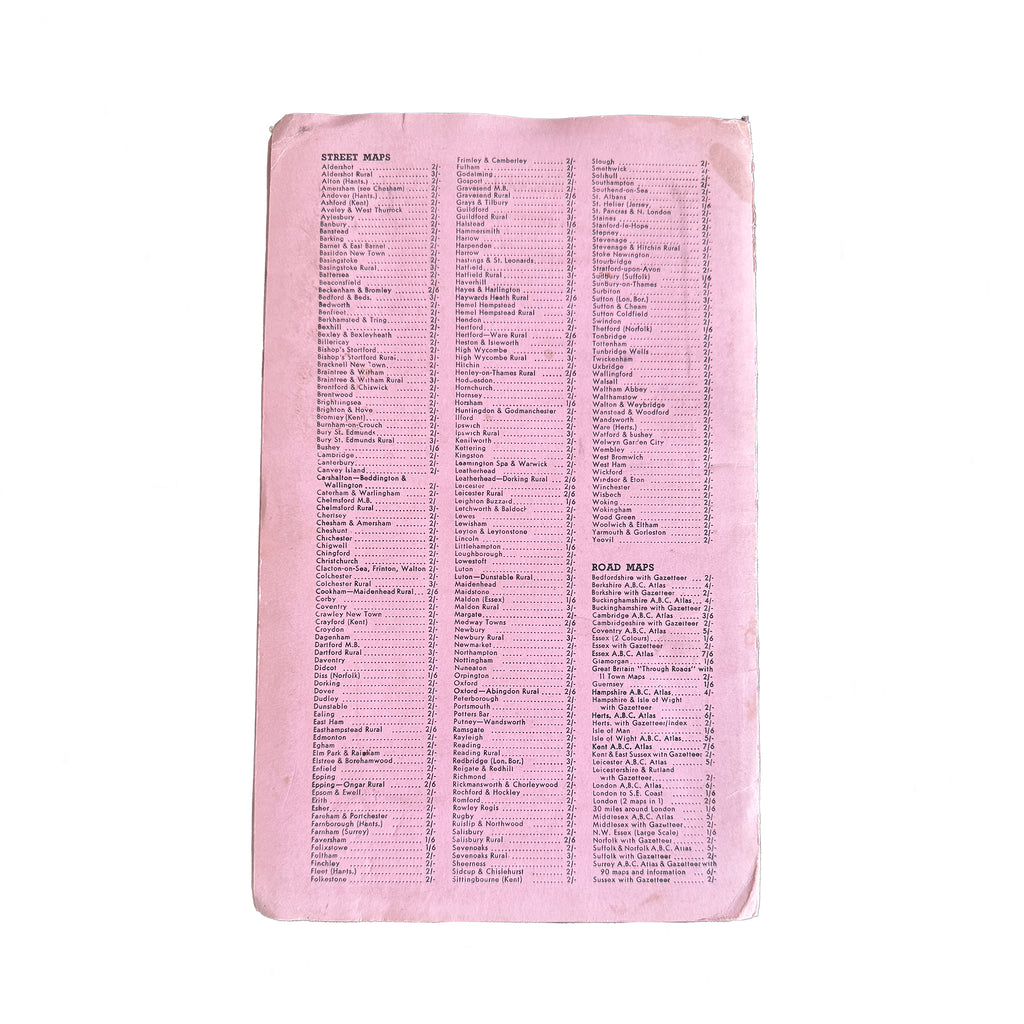 STREET MAPS
Aldershot 2/-
Aldershot Rural 3/-
Alton (Hants.) 2/-
Amersham (see Chesham) 2/-
Andover (Hants.) 2/-
Ashford (Kent) 2/-
Aveley & West Thurrock 2/-
Aylesbury 2/-
Banbury 2/-
Banstead 2/-
Barking 2/-
Barnet & East Barnet 2/-
Basildon New Town 2/-
Basingstoke 2/-
Basingstoke Rural 3/-
Battersea 2/-
Beaconsfield 2/-
Beckenham & Bromley 2/6
Bedford & Beds. 3/-
Bedworth 2/-
Benfleet 2/-
Berkhamsted & Tring 2/-
Bexhill 2/-
Bexley & Bexleyheath 2/-
Billericay 2/-
Bishop's Stortford 2/-
Bishop's Stortford Rural 3/-
Bracknell New Town 2/-
Braintree & Witham 2/-
Braintree & Witham Rural 3/-
Brentford & Chiswick 2/-
Brentwood 2/-
Brightlingsea 2/-
Brighton & Hove 2/-
Bromley (Kent) 2/-
Burnham-on-Crouch 2/-
Bury St. Edmunds 2/-
Bury St. Edmunds Rural 3/-
Bushey 1/6
Cambridge 2/-
Canterbury 2/-
Canvey Island 2/-
Carshalton—Beddington &
Wallington 2/-
Caterham & Warlingham 2/-
Chelmsford M.B. 2/-
Chelmsford Rural 3/-
Chertsey 2/-
Chesham & Amersham 2/-
Cheshunt 2/-
Chichester 2/-
Chigwell 2/-
Chingford 2/-
Christchurch 2/-
Clacton-on-Sea, Frinton, Walton 2/-
Colchester 2/-
Colchester Rural 3/-
Cookham—Maidenhead Rural 2/6
Corby 2/-
Coventry 2/-
Crawley New Town 2/-
Crayford (Kent) 2/-
Croydon 2/-
Dagenham 2/-
Dartford M.B. 2/-
Dartford Rural 3/-
Daventry 2/-
Didcot 2/-
Diss (Norfolk) 1/6
Dorking 2/-
Dover 2/-
Dudley 2/-
Dunstable 2/-
Ealing 2/-
East Ham 2/-
Easthampstead Rural 2/6
Edmonton 2/-
Egham 2/-
Elm Park & Rainham 2/-
Elstree & Borehamwood 2/-
Enfield 2/-
Epping 2/-
Epping—Ongar Rural 2/6
Epsom & Ewell 2/-
Erith 2/-
Esher 2/-
Fareham & Portchester 2/-
Farnborough (Hants.) 2/-
Farnham (Surrey) 2/-
Faversham 1/6
Felixstowe 1/6
Feltham 2/-
Finchley 2/-
Fleet (Hants.) 2/-
Folkestone 2/-
Frimley & Camberley 2/-
Fulham 2/-
Godalming 2/-
Gosport 2/-
Gravesend M.B. 2/-
Gravesend Rural 2/6
Grays & Tilbury 2/-
Guildford 2/-
Guildford Rural 3/-
Halstead 1/6
Hammersmith 2/-
Harlow 2/-
Harpenden 2/-
Harrow 2/-
Hastings & St. Leonards 2/-
Hatfield 2/-
Hatfield Rural 3/-
Haverhill 2/-
Hayes & Harlington 2/-
Haywards Heath Rural 2/6
Hemel Hempstead 2/-
Hemel Hempstead Rural 3/-
Hendon 2/-
Hertford 2/-
Hertford—Ware Rural 2/6
Heston & Isleworth 2/-
High Wycombe 2/-
High Wycombe Rural 3/-
Hitchin 2/-
Henley-on-Thames Rural 2/6
Hoddesdon 2/-
Hornchurch 2/-
Hornsey 2/-
Horsham 1/6
Huntingdon & Godmanchester 2/-
Ilford 2/-
Ipswich 2/-
Ipswich Rural 3/-
Kenilworth 2/-
Kettering 2/-
Kingston 2/-
Leamington Spa & Warwick 2/-
Leatherhead 2/-
Leatherhead—Dorking Rural 2/6
Leicester 2/6
Leicester Rural 2/6
Leighton Buzzard 1/6
Letchworth & Baldock 2/-
Lewes 2/-
Lewisham 2/-
Leyton & Leytonstone 2/-
Lincoln 2/-
Littlehampton 1/6
Loughborough 2/-
Lowestoft 2/-
Luton 2/-
Luton—Dunstable Rural 3/-
Maidenhead 2/-
Maidstone 2/-
Maldon (Essex) 1/6
Maldon Rural 3/-
Margate 2/-
Medway Towns 2/6
Newbury 2/-
Newbury Rural 3/-
Newmarket 2/-
Northampton 2/-
Nottingham 2/-
Nuneaton 2/-
Orpington 2/-
Oxford 2/-
Oxford—Abingdon Rural 2/6
Peterborough 2/-
Portsmouth 2/-
Potters Bar 2/-
Putney—Wandsworth 2/-
Ramsgate 2/-
Rayleigh 2/-
Reading 2/-
Reading Rural 3/-
Redbridge (Lon. Bor.) 3/-
Reigate & Redhill 2/-
Richmond 2/-
Rickmansworth & Chorleywood 2/-
Rochford & Hockley 2/-
Romford 2/-
Rowley Regis 2/-
Rugby 2/-
Ruislip & Northwood 2/-
Salisbury 2/-
Salisbury Rural 2/6
Sevenoaks 2/-
Sevenoaks Rural 3/-
Sheerness 2/-
Sidcup & Chislehurst 2/-
Sittingbourne (Kent) 2/-
Slough 2/-
Smethwick 2/-
Solihull 2/-
Southampton 2/-
Southend-on-Sea 2/-
St. Albans 2/-
St. Helier (Jersey) 1/6
St. Pancras & N. London 2/-
Staines 2/-
Stanford-le-Hope 2/-
Stepney 2/-
Stevenage 2/-
Stevenage & Hitchin Rural 3/-
Stoke Newington 2/-
Stourbridge 2/-
Stratford-upon-Avon 2/-
Sudbury (Suffolk) 1/6
Sunbury-on-Thames 2/-
Surbiton 2/-
Sutton (Lon. Bor.) 3/-
Sutton & Cheam 2/-
Sutton Coldfield 2/-
Swindon 2/-
Thetford (Norfolk) 1/6
Tonbridge 2/-
Tottenham 2/-
Tunbridge Wells 2/-
Twickenham 2/-
Uxbridge 2/-
Wallingford 2/-
Walsall 2/-
Waltham Abbey 2/-
Walthamstow 2/-
Walton & Weybridge 2/-
Wanstead & Woodford 2/-
Wandsworth 2/-
Ware (Herts.) 2/-
Watford & Bushey 2/-
Welwyn Garden City 2/-
Wembley 2/-
West Bromwich 2/-
West Ham 2/-
Wickford 2/-
Windsor & Eton 2/-
Winchester 2/-
Wisbech 2/-
Woking 2/-
Wokingham 2/-
Wood Green 2/-
Woolwich & Eltham 2/-
Yarmouth & Gorleston 2/-
Yeovil 2/-
ROAD MAPS
Bedfordshire with Gazetteer 2/-
Berkshire A.B.C. Atlas 4/-
Berkshire with Gazetteer 2/-
Buckinghamshire A.B.C. Atlas 4/-
Buckinghamshire with Gazetteer 2/-
Cambridge A.B.C. Atlas 3/6
Cambridgeshire with Gazetteer 2/-
Coventry A.B.C. Atlas 5/-
Essex (2 Colours) 1/6
Essex with Gazetteer 2/-
Essex A.B.C. Atlas 7/6
Glamorgan 1/6
Great Britain "Through Roads" with
11 Town Maps 2/-
Guernsey 1/6
Hampshire A.B.C. Atlas 4/-
Hampshire & Isle of Wight
with Gazetteer 2/-
Herts. A.B.C. Atlas 6/-
Herts. with Gazetteer/index 2/-
Isle of Man 1/6
Isle of Wight A.B.C. Atlas 5/-
Kent A.B.C. Atlas 7/6
Kent & East Sussex with Gazetteer 2/-
Leicester A.B.C. Atlas 5/-
Leicestershire & Rutland
with Gazetteer 2/-
London A.B.C. Atlas 6/-
London to S.E. Coast 1/6
London (2 maps in 1) 2/6
30 miles around London 1/6
Middlesex A.B.C. Atlas 5/-
Middlesex with Gazetteer 2/-
N.W. Essex (Large Scale) 1/6
Norfolk with Gazetteer 2/-
Suffolk & Norfolk A.B.C. Atlas 5/-
Suffolk with Gazetteer 2/-
Surrey A.B.C. Atlas & Gazetteer with
90 maps and information 6/-
Sussex with Gazetteer 2/-